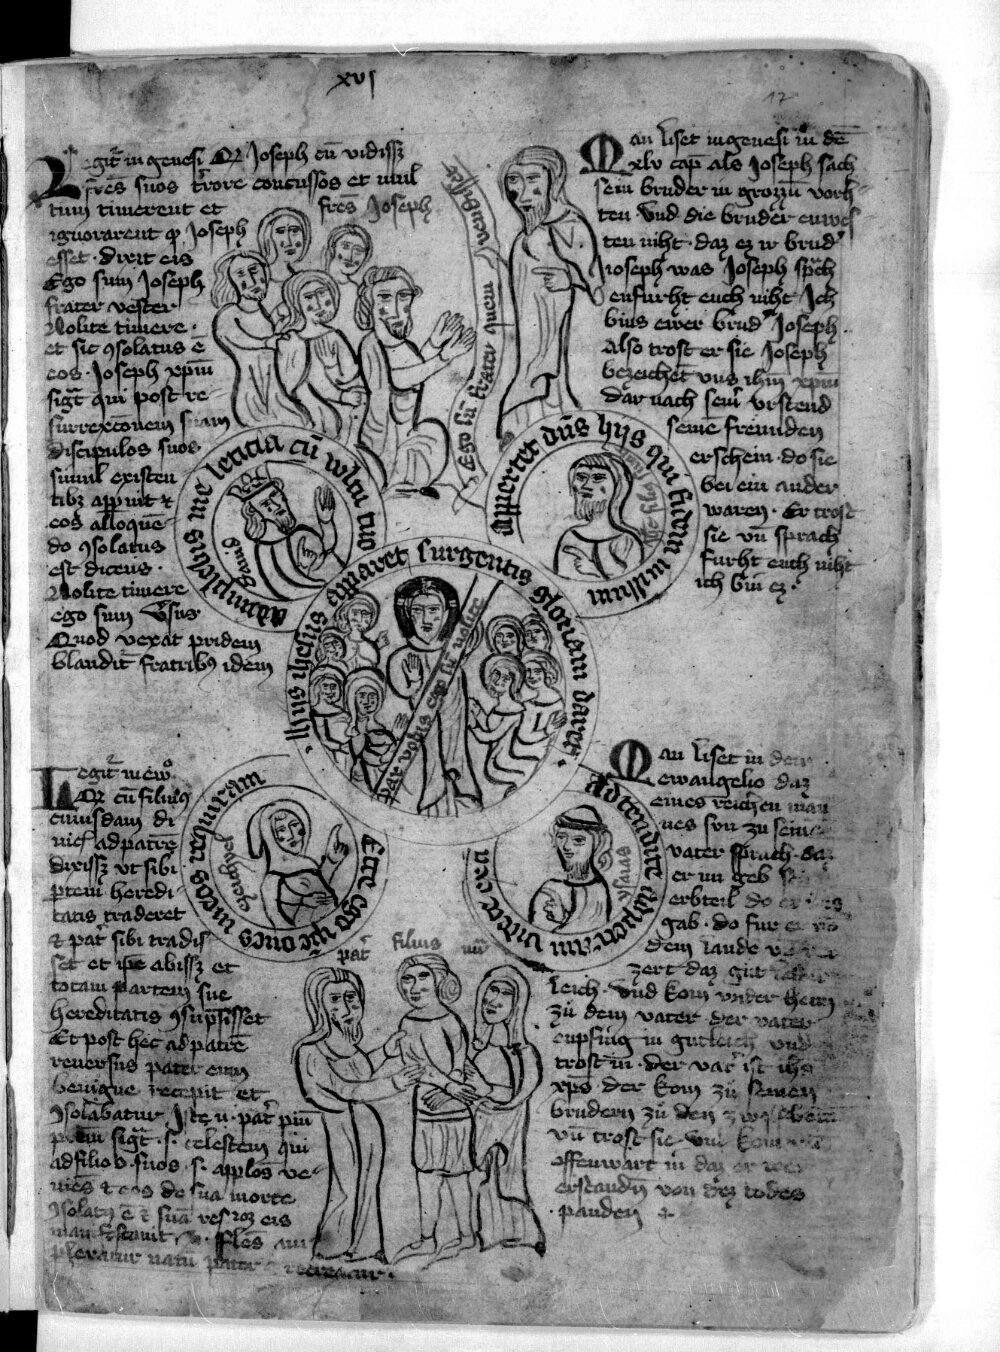 xvj
12
Legit̄ in genesi Qr Joseph cū vidissꝫ
fr̄es suos t̄rore concussos et mul
tum timerent et
ignorarent ꝙ Joseph
esset · dixit eis
Ego sum Joseph
frater vester
Nolite timere ·
et sic ꝯsolatus ē
eos · Joseph xp̄m
sig̅t qui post re-
surrexc̄onem suam
discipulos suos
simul existen
tibꝫ appruit ⁊
eos alloquē-
do ꝯsolatus
est dicens ·
Nolite timere
ego sum v̄sus
Quod vexat pridem
blandit̄ fratribꝫ idem
fr̄es Joseph
Ego sū frater quem vendidistis
Man liset in genesi in dē
xlv cap als Joseph sach
sein bruder in grozzu vorh
ten vnd die bruder enwes
ten niht · daz ez ir brud̓
ioseph was Joseph sp̄ch
enfurht euch niht Jch
bins ewer brud̓ Joseph
Also trost er sie Joseph
bezeichet vns ih̄m xp̄m
dar nach seinr̄ vrstend
seine freunden
erschein · do sie
bei ein ander
waren · Er trost
sie vn̄ sprach
furht euch niht
ich bin ez ·
adimplebis me leticia cū vultu tuo
Dauid
apperret dn̄s hijs qui
Hijs ihesus apparet surgentis gloriam daret ·
pax vobis ego sū nolite
Legit̄ in ewō
Qr cū filius
cuiusdam di
uitis ad patrē
dixissꝫ vt sibi
ptem heredi-
tatis traderet
⁊ pat̄ sibi tradis
set et ipe abissꝫ et
totam partem sue
hereditatis ꝯsūpsisset
Et post hec ad patrē
reuersus pater eum
benigne recepit et
ꝯsolabatur Jste · n · pat̄ piū
prēm sig̅t · s · celestem qui
ad filios suos · s · app̄los ve-
niēs ⁊ eos de sua morte
ꝯsolatꝰ ē ⁊ suā res eis
Ecce ego ipe oues meas requiram
ezechyel
Adtendite
ysaias
pat̄ filius
Man liset in dem
ewangelio daz
eines reichen man
nes sun zu seinē
vater sprach · daz
er im geb
erbteil do er
gab · do fur er
dem lande
zert daz gut
leich · vnd kom wider heim
zu dem vater der vater
enpfing in gutleich vnd
trost in · der vat̄ ist ih̄s
xp̄s der kom zu seinen
brudern zu den zwelfboten
vn̄ trost sie vnd kom
offenwart in daz er wer
erstanden von dez todes
panden